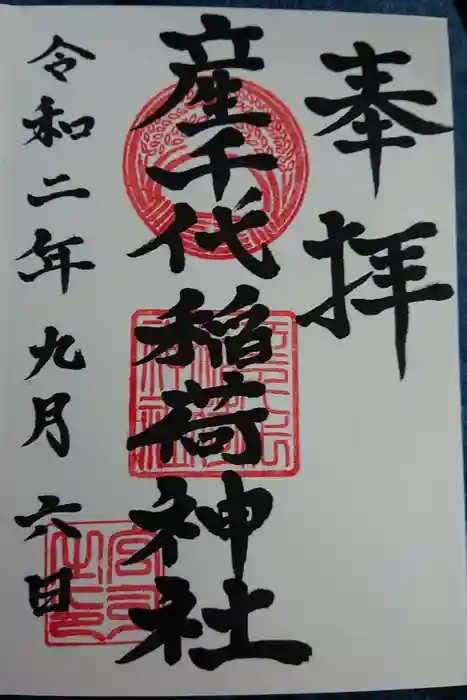 奉拝
産千代稲荷神社
令和二年九月六日